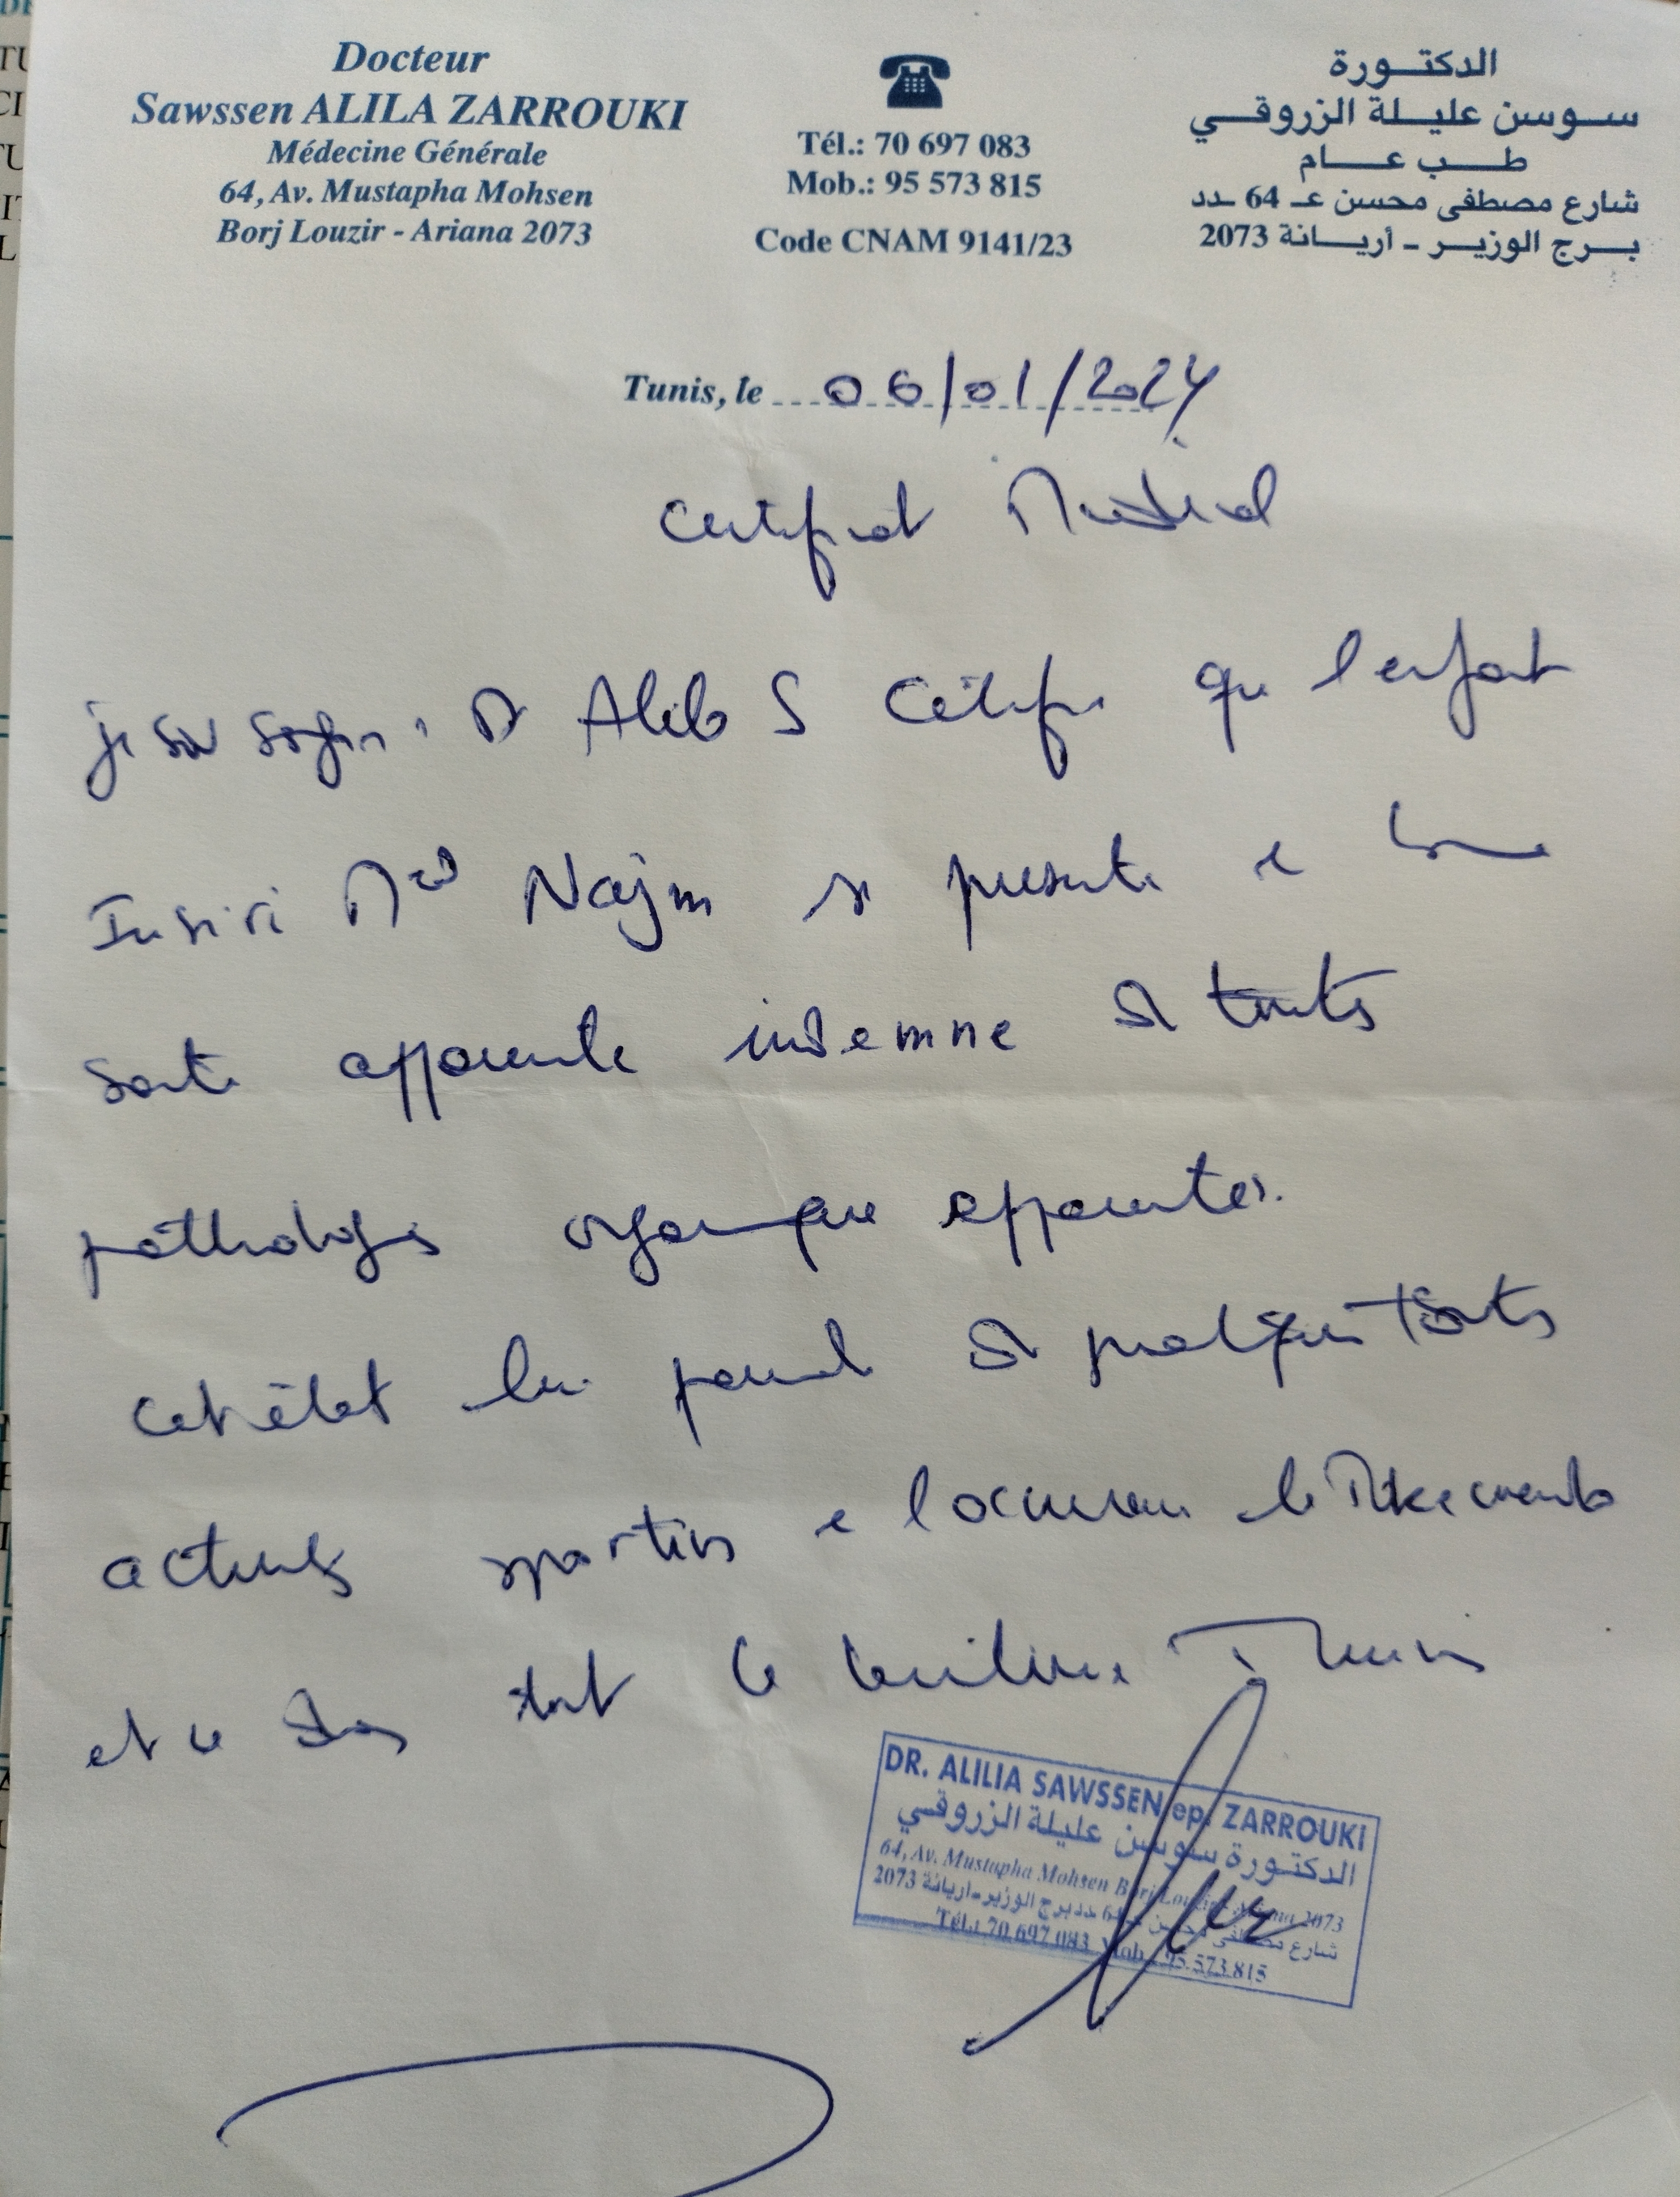 Docteur
Sawssen ALILA ZARROUKI
Médecine Générale
64, Av. Mustapha Mohsen
Borj Louzir - Ariana 2073
Tél.: 70 697 083
Mob.: 95 573 815
Code CNAM 9141/23
الدكتورة
سوسن عليلة الزروقي
طب عام
شارع مصطفى محسن عـ 64 ـدد
برج الوزير - أريانة 2073
Tunis, le 06/01/2024
Certificat Médical
je sou ssigné Dr Alila S Certifie que l'enfant
Med Najm se présente en bonne
santé apparente indemne de toutes
pathologies organique apparentes.
cet état lui permet de pratiquer toutes
activités sportives
et ce dans tout le territoire Tunisien
DR. ALILIA SAWSSEN ep. ZARROUKI
الدكتورة سوسن عليلة الزروقي
64, Av. Mustapha Mohsen Borj Louzir 2073
شارع مصطفى محسن برج الوزير-اريانة 2073
Tél.: 70 697 083 Mob.: 95 573 815